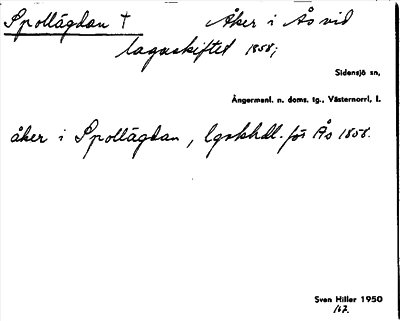 Spollägdan † Åker i Ås vid
lagaskiftet 1858;
Sidensjö sn,
Ångermanl. n. doms. tg., Västernorrl. l.
åker i Spollägdan, lgskhdl. för Ås 1858.
Sven Hiller 1950
167.